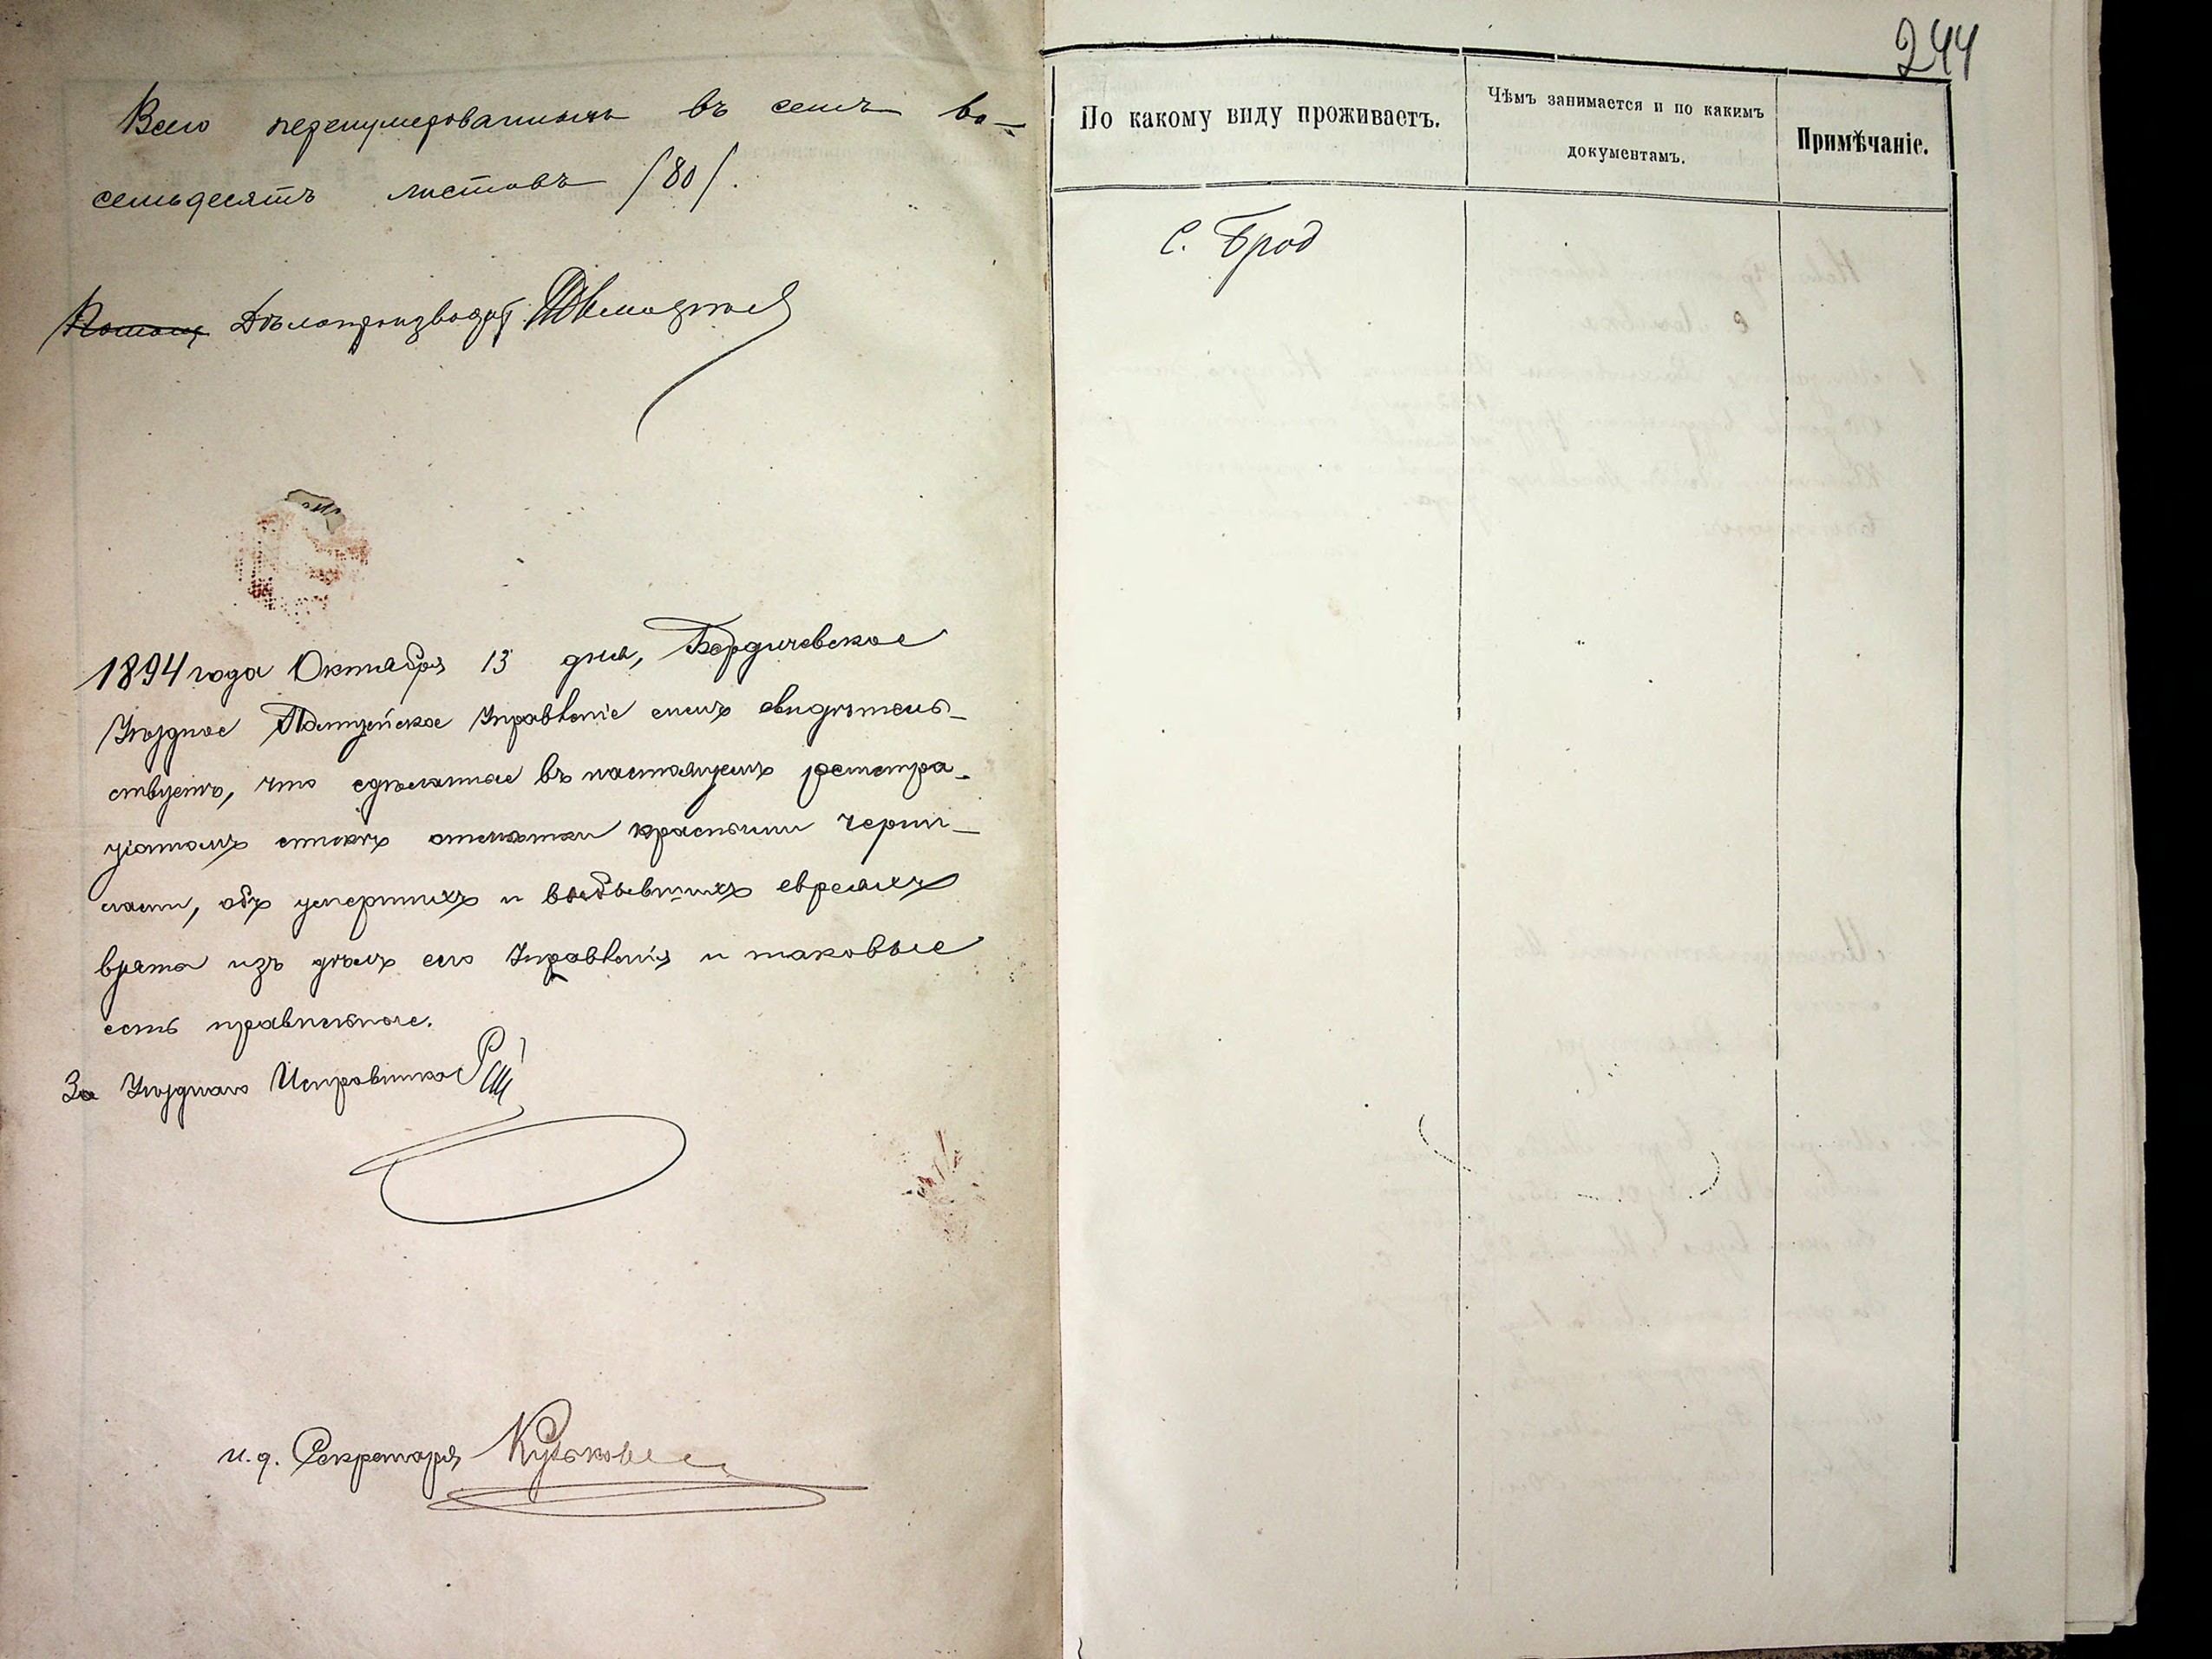 Всего перенумерованныхъ въ семъ во-
семьдесятъ листовъ /80/.
Помощ Дѣлопроизводит
1894 года Октября 13 дня, Бердичевское
Уѣздное Полицейское Управленіе симъ свидѣтель-
ствуетъ, что сдѣланные въ настоящемъ регистра-
ціонномъ спискѣ отмѣтки красными черни-
лами, объ умершихъ и выбывшихъ евреяхъ
взята изъ дѣлъ сего Управленія и таковые
есть правильные.
За Уѣзднаго Исправника
и. д. Секретаря
244
По какому виду проживаетъ.
Чѣмъ занимается и по какимъ
документамъ.
Примѣчаніе.
С. Брод